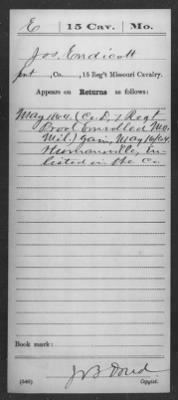 E | 15 Cav. | Mo.
Jos. Endicott
Pvt, Co. , 15 Reg't Missouri Cavalry.
Appears on Returns as follows:
May 1864. (Co D, 7 Regt
Prov( Enrolled Mo.
Mil.) Gain, May 16/64
Humansville, En-
listed in the Co.
Book mark:
J B Doud
(546) Copyist.